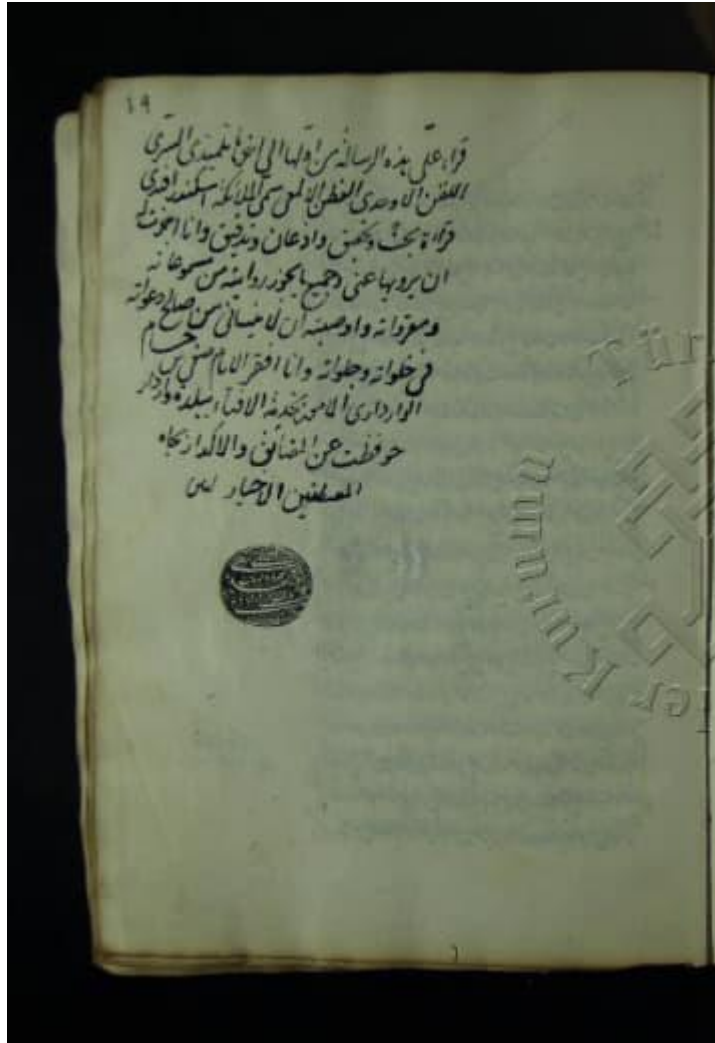 ١٩
قراء علي هذه الرسالة من اولها الي اخرها تلميذي السري
اللقن الاوحدي الفطن الالمعي سمي الملائكة اسكندر افندي
قراءة بحث وتحقيق واذعان وتدقيق وانا اجزت له
ان يرويها عني وجميع ما يجوز روايته من مسموعاته
ومقرواته واوصيته ان لا ينساني من صالح دعواته
في خلواته وجلواته وانا افقر الانام
الوارداري المامور بخدمة الافتاء ببلدة واردار
حوفظت عن المضائق والاكدار بجاه
المصطفين الاخيار
Tür
umuruK rel